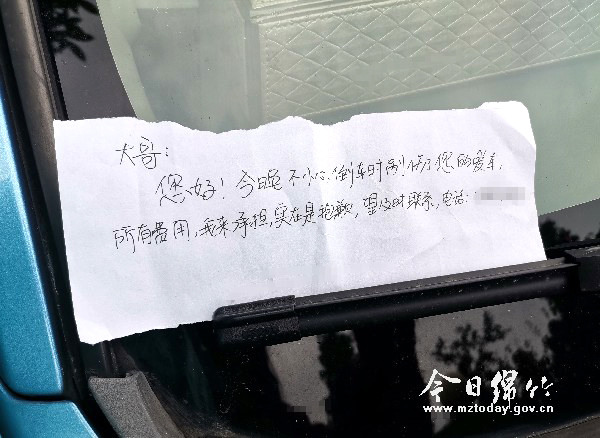 大哥:
您好!今晚不小心倒车时刮伤了您的爱车,
所有费用,我来承担,实在是抱歉,望及时联系,电话:
今日绵竹
www.mztoday.gov.cn